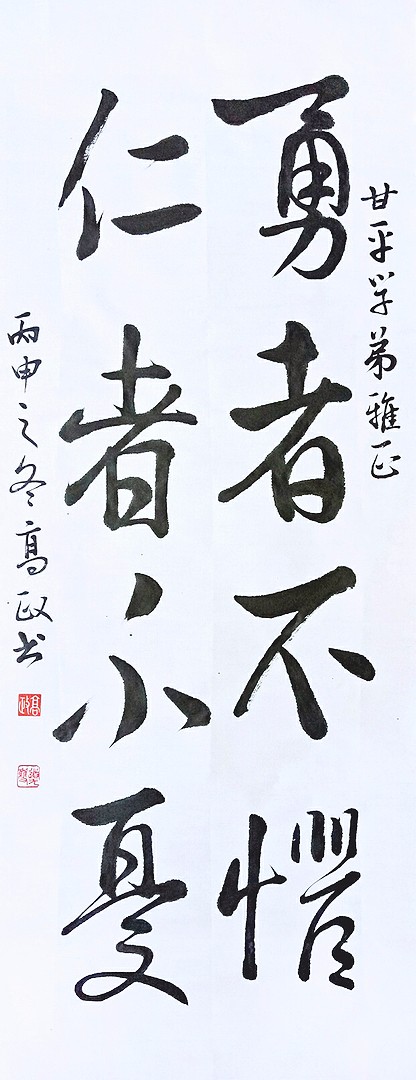 甘平学弟雅正
勇者不懼
仁者不憂
丙申之冬高政书
高政